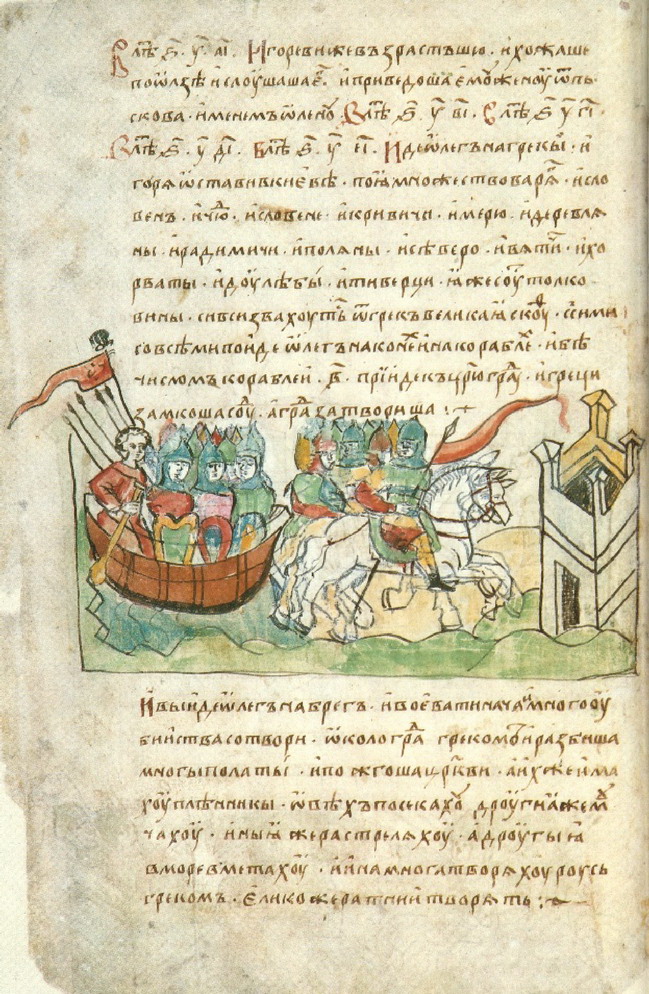 В лѣт҃ ҂ѕ҃ . у҃ . аі҃ . Игореви же възрастъшю . и хожаше
по ѡлзѣ и слоушаша ег҃ . и приведоша ему жену ѿ пь
скова . именемъ ѡлену В лѣт҃ ҂ѕ҃ . у҃ ві҃ . В лѣт҃ ҂ѕ҃ у҃ гі҃ .
В лѣт҃ ҂ѕ҃ . у҃ ді҃ . В лѣт҃ ҂ѕ҃ . у҃ еі҃ . Иде ѡлегъ на грекы . и
горя ѡстави в киевѣ . поꙗ множество варѧ . и сло
венъ . и чю . и словене . и кривичи . и мерю . и деревлѧ
ны . и радимичи . и полѧны . и сѣверо . и вѧтич . и хо
рваты . и доулѣбы . и тиверци . ꙗже соут толко
вины . си вси звахоуть ѿ грекъ великаꙗ скоуф . с сими
со всѣми поиде ѡлегъ на конех и на кораблех . и бѣ
числомъ кораблеи . в҃ . приіде къ цр҃ю град . и греци
замкоша соуд . а град затвориша :
И выиде ѡлегъ на брегъ . и воевати нача и много оу
биіства сотвори . ѡколо град греком и разбиша
многы полаты . и пожгоша црк҃ви . а ихже има
хоу плѣнникы . ѡвѣхъ посекахоу дроугиꙗ же моу
чахоу . иныꙗ же растрелѧхоу . а дроугыꙗ
в море вметахоу . и ина многа творѧхоу роусь
грекомъ . елико же ратнии творѧть :